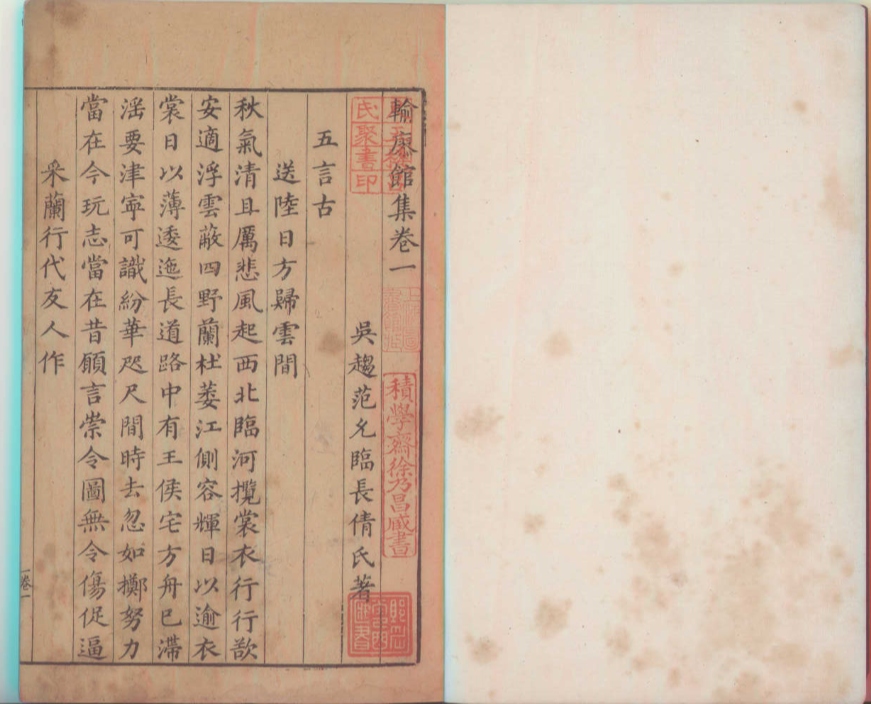 輸廖館集卷一
吳趨范允臨長倩氏著
五言古
送陸日方歸雲間
秋氣清且厲悲風起西北臨河攬裳衣行行歆
安適浮雲蔽四野蘭杜萎江側容輝日以逾衣
裳日以薄逶迤長道路中有王侯宅方舟已滯
滛要津寧可識紛華咫尺間時去忽如擲努力
當在今玩志當在昔願言崇令圖無令傷促逼
采蘭行代友人作
卷一
氏聚書印
積學齋徐乃昌藏書